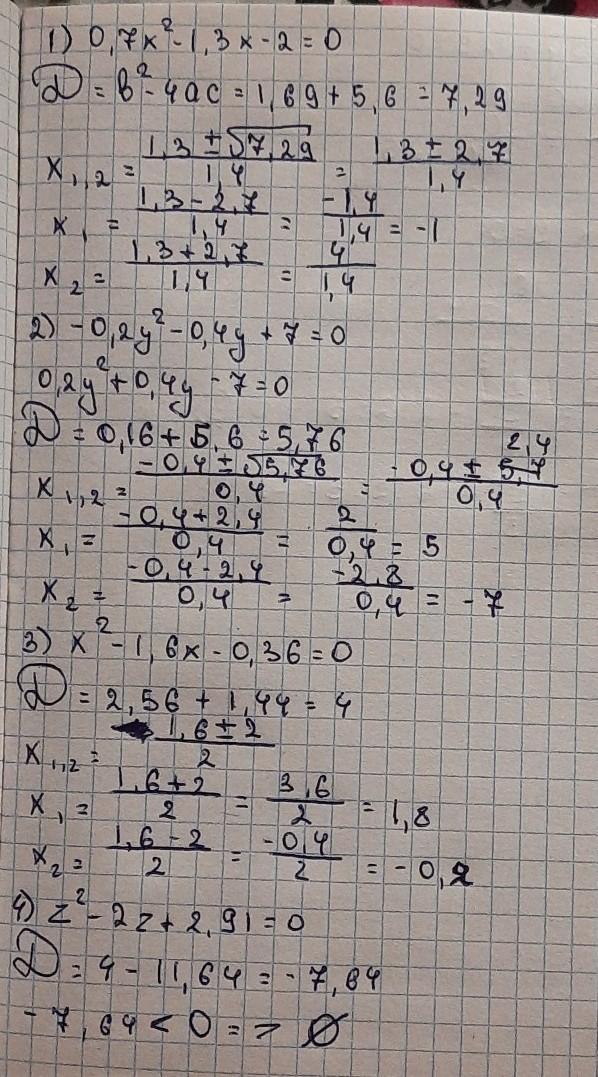 1) 0,7x² - 1,3x - 2 = 0
D = b² - 4ac = 1,69 + 5,6 = 7,29
x₁,₂ = (1,3 ± √7,29)/1,4 = (1,3 ± 2,7)/1,4
x₁ = (1,3 - 2,7)/1,4 = -1,4/1,4 = -1
x₂ = (1,3 + 2,7)/1,4 = 4/1,4
2) -0,2y² - 0,4y + 7 = 0
0,2y² + 0,4y - 7 = 0
D = 0,16 + 5,6 = 5,76
x₁,₂ = (-0,4 ± √5,76)/0,4 = (-0,4 ± 2,4)/0,4
x₁ = (-0,4 + 2,4)/0,4 = 2/0,4 = 5
x₂ = (-0,4 - 2,4)/0,4 = -2,8/0,4 = -7
3) x² - 1,6x - 0,36 = 0
D = 2,56 + 1,44 = 4
x₁,₂ = (1,6 ± 2)/2
x₁ = (1,6 + 2)/2 = 3,6/2 = 1,8
x₂ = (1,6 - 2)/2 = -0,4/2 = -0,2
4) z² - 2z + 2,91 = 0
D = 4 - 11,64 = -7,64
-7,64 < 0 => ∅